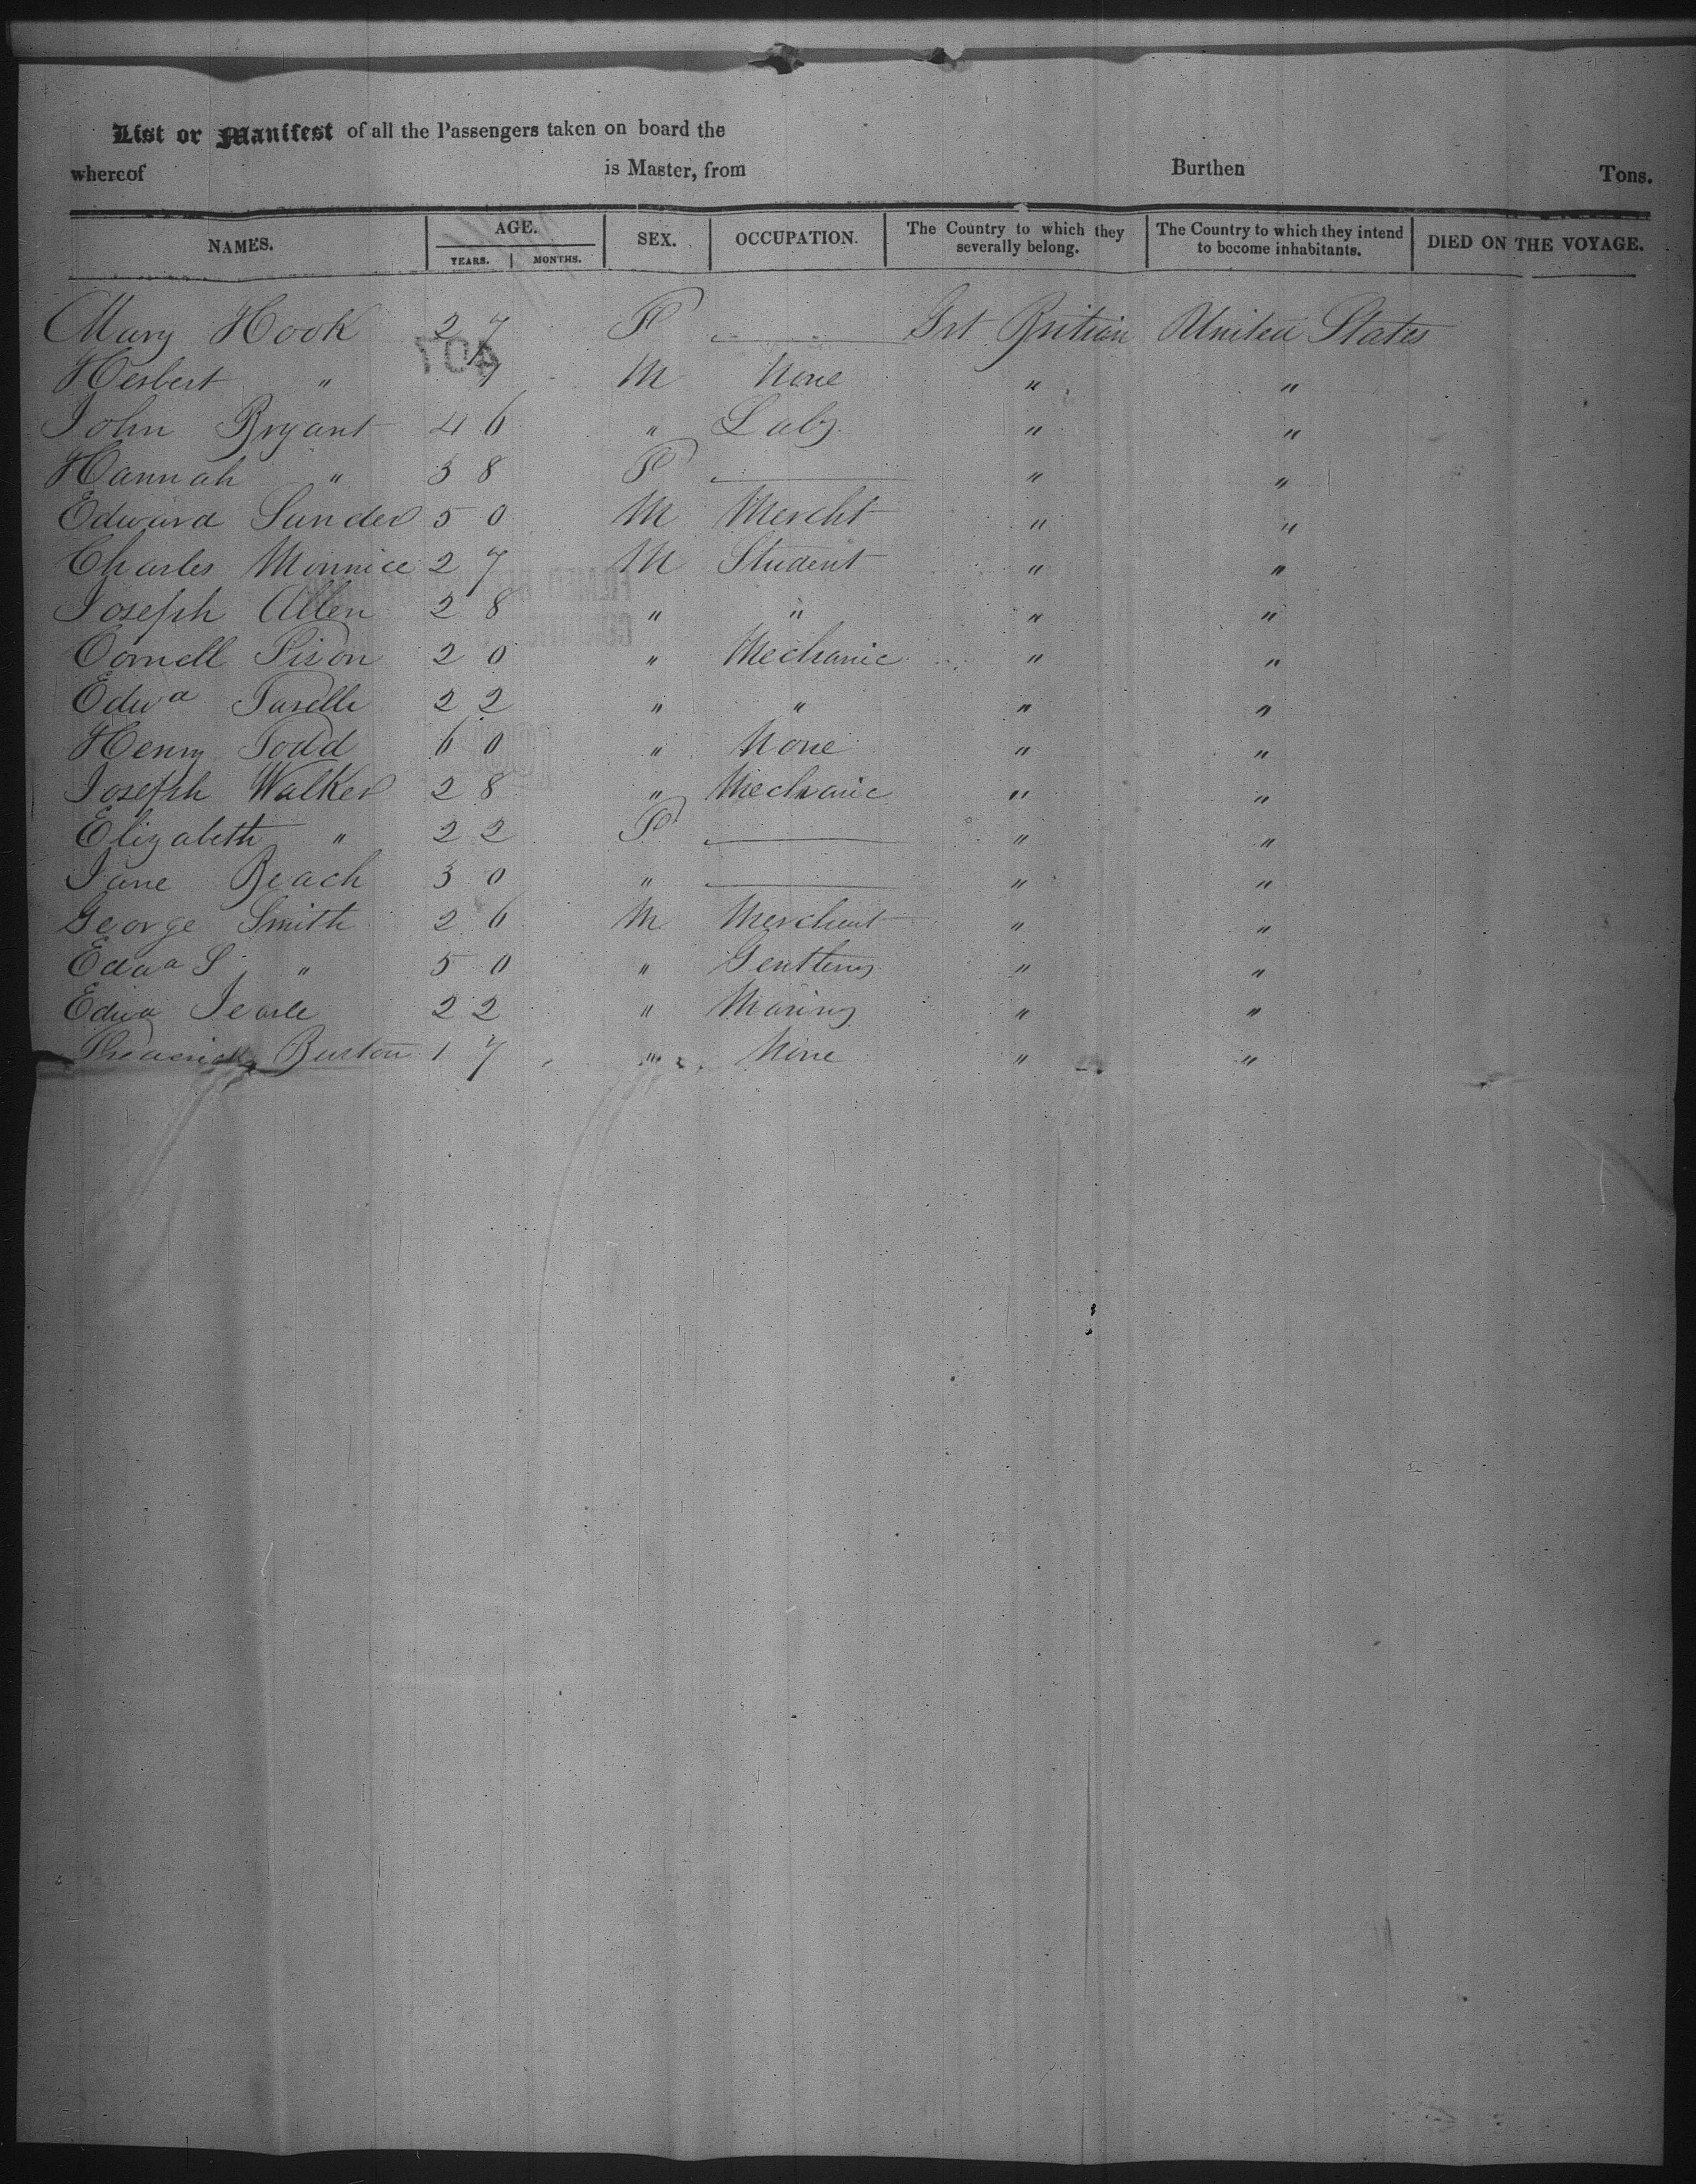 List or Manifest of all the Passengers taken on board the
whereof is Master, from Burthen Tons.
NAMES. AGE. YEARS. MONTHS. SEX. OCCUPATION. The Country to which they severally belong. The Country to which they intend to become inhabitants. DIED ON THE VOYAGE.
Mary Hook 27 F Grt Britian United States
Herbert " 7 M None " "
John Bryant 46 " Labr " "
Hannah " 38 F " "
Edward Sander 50 M Mercht " "
Charles Minnice 27 M Student " "
Joseph Allen 28 " " " "
Cornell Sison 20 " Mechanic " "
Edwd 22 " " " "
Henry Todd 60 " None " "
Joseph Walker 28 " Mechanic " "
Elizabeth " 22 F " "
Jane Beach 30 " " "
George Smith 26 M Merchant " "
Edwd S " 50 " Gentlmn " "
Edwd Searle 22 " Marinr " "
Frederick Burton 17 " None " "